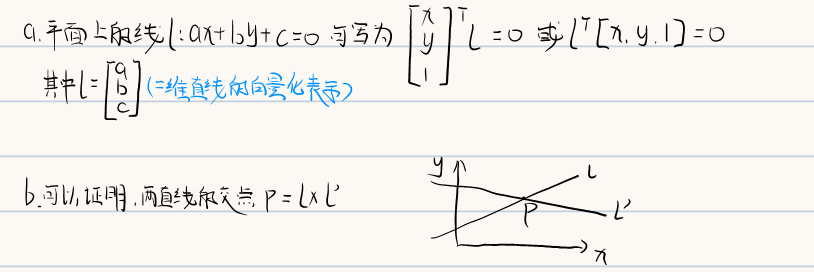 a.平面上的线l:ax+by+c=0 可写为 [x y 1]ᵀ l=0 或 lᵀ[x,y,1]=0
其中l=[a b c](二维直线的向量化表示)
b.可以证明,两直线的交点 P=l×l'
y l
P l'
x